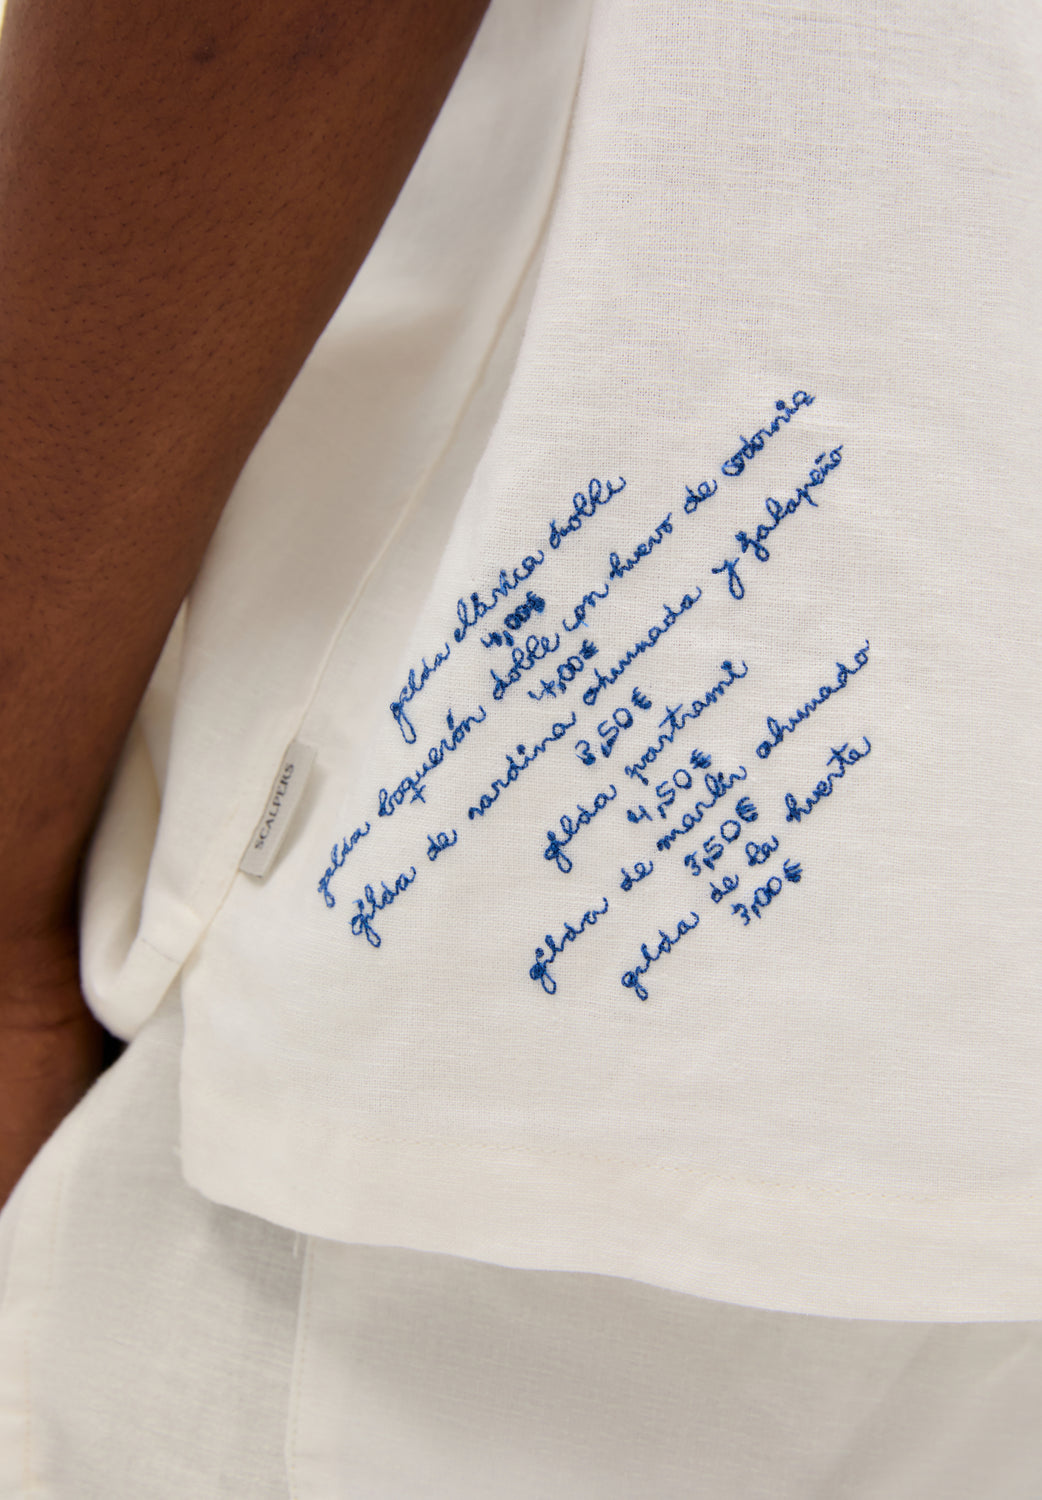 gilda clásica doble
4,00€
gilda boquerón doble con huevo de codorniz
4,00€
gilda de sardina ahumada y jalapeño
3,50€
gilda pastrami
4,50€
gilda de marlin ahumado
3,50€
gilda de la huerta
3,00€
SCALPERS